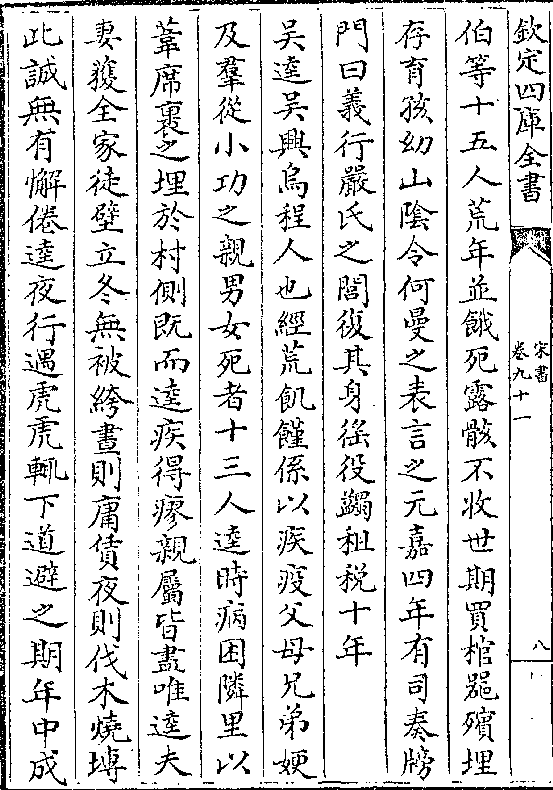 欽定四庫全書
宋書
卷九十一
八
伯等十五人荒年並餓死露骸不收世期買棺器殯埋
存育孩幼山陰令何曼之表言之元嘉四年有司奏牓
門曰義行嚴氏之閭復其身徭役蠲租税十年
吴逵吴興烏程人也經荒飢饉係以疾疫父母兄弟㛐
及羣從小功之親男女死者十三人逵時病困隣里以
葦席裹之埋於村側既而逵疾得瘳親屬皆盡唯逵夫
妻獲全家徒壁立冬無被絝晝則庸賃夜則伐木燒塼
此誠無有懈倦逵夜行遇虎虎輒下道避之期年中成